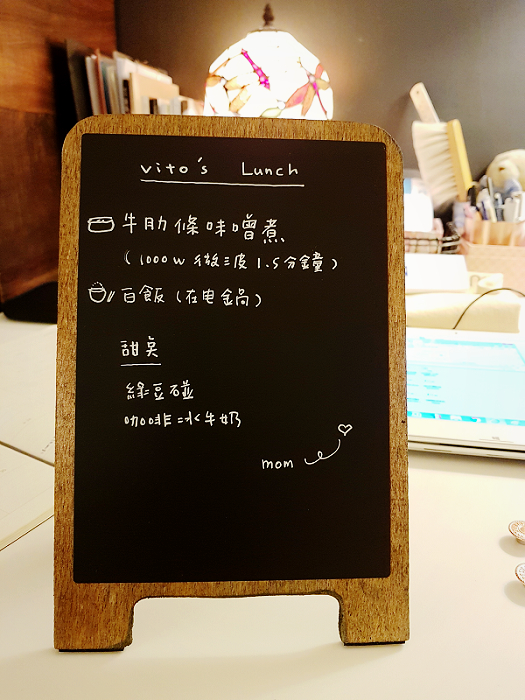 vito's Lunch
牛肋條味噌煮
(1000w 微波 1.5分鐘)
白飯(在电鍋)
甜臭
綠豆碰
咖啡冰牛奶
mom